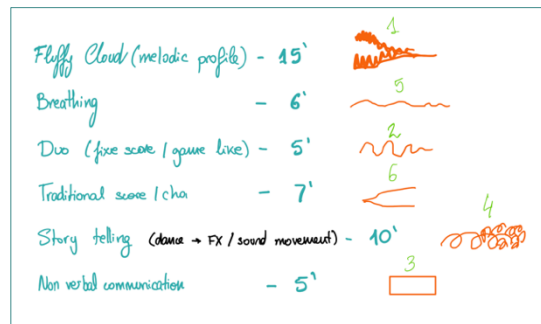 1
Fluffy Cloud (melodic profile) - 15'
5
Breathing - 6'
2
Duo (fixe score / game like) - 5'
6
Traditional score / cha - 7'
4
Story telling (dance → FX / sound movement) - 10'
3
Non verbal communication - 5'